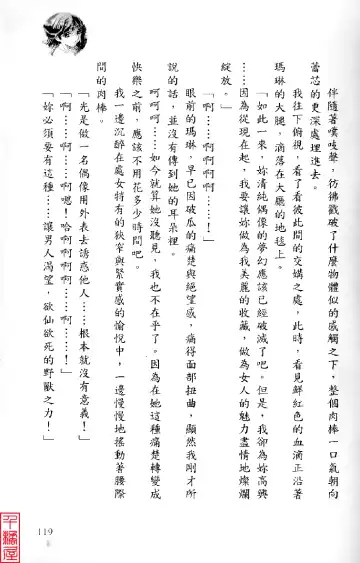 伴隨著噗吱聲，彷彿戳破了什麼物體似的感觸之下，整個肉棒一口氣朝向
蕾芯的更深處埋進去。
我往下俯視，看了看彼此間的交媾之處，此時，看見鮮紅色的血滴正沿著
瑪琳的大腿，滴落在大廳的地毯上。
「如此一來，妳清純偶像的夢幻應該已經破滅了吧。但是，我卻為妳高興
……因為從現在起，我要讓妳做為我美麗的收藏，做為女人的魅力盡情地燦爛
綻放。」
「啊啊啊啊……！」
眼前的瑪琳，早已因破瓜的痛楚與絕望感，痛得面部扭曲，顯然我剛才所
說的話，並沒有傳到她的耳朵裡。
呵呵呵……如今就算她沒聽見，我也不在乎了。因為在她這種痛楚轉變成
快樂之前，應該不用花多少時間吧。
我一邊沉醉在處女特有的狹窄與緊實感的愉悅中，一邊慢慢地搖動著腰際
間的肉棒。
「先是做一名偶像用外表去誘惑他人……根本就沒有意義！」
「啊……啊……啊！嗯！哈啊啊啊……啊……！」
「妳必須要有這種……讓男人渴望，欲仙欲死的野獸之力！」
119